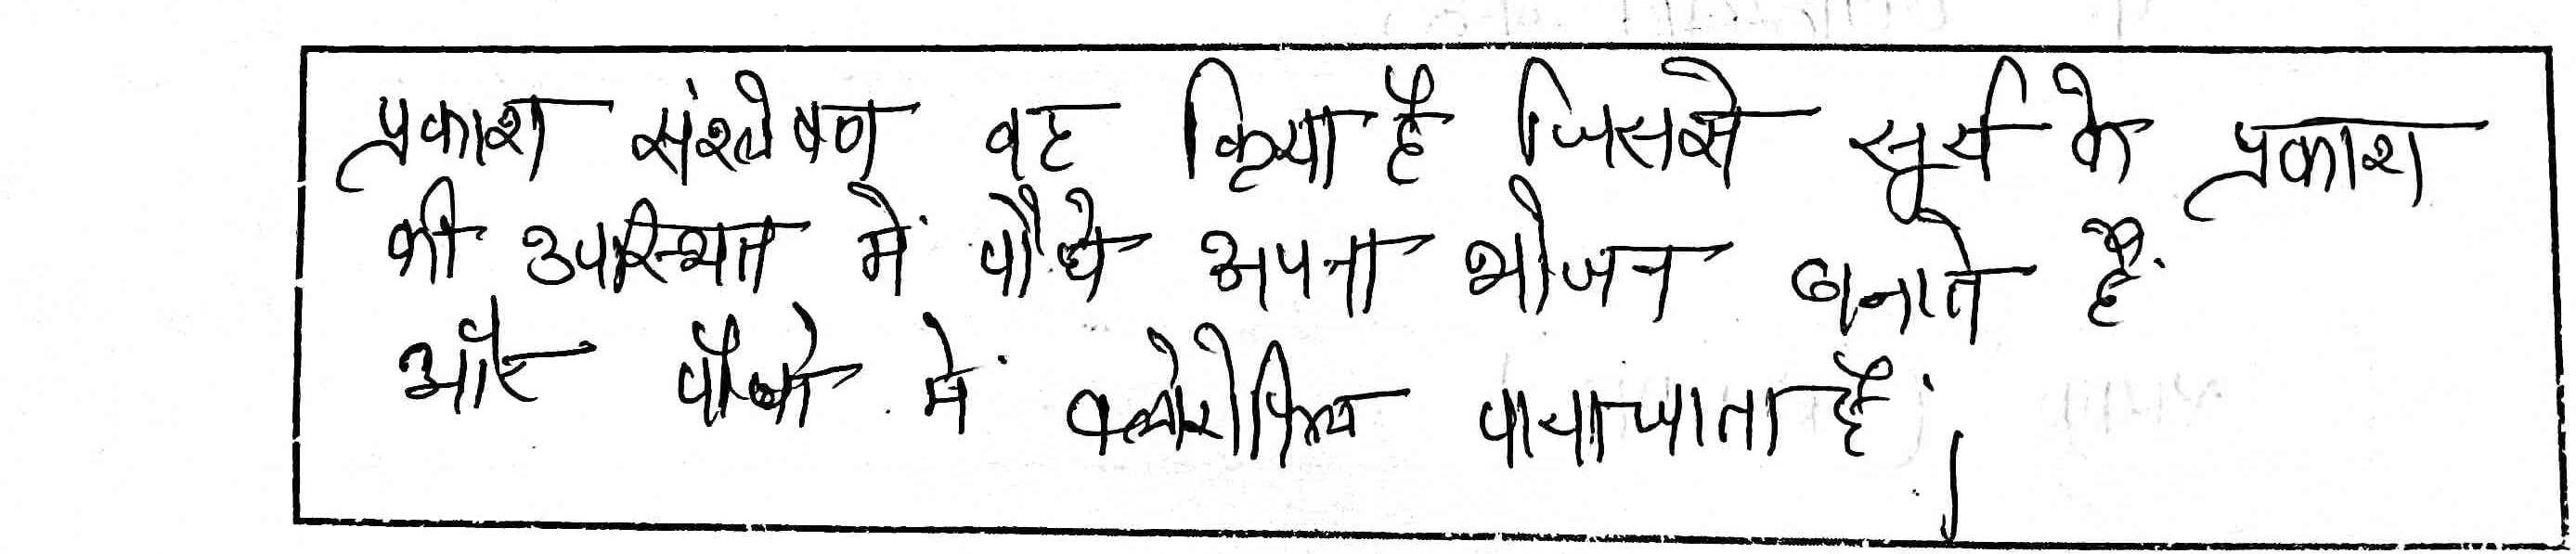 प्रकाश संश्लेषण वह क्रिया है जिससे सूर्य के प्रकाश
की उपस्थित में पौधे अपना भोजन बनाते हैं
और पौधो में क्लोरोफिल पाया जाता हैं।